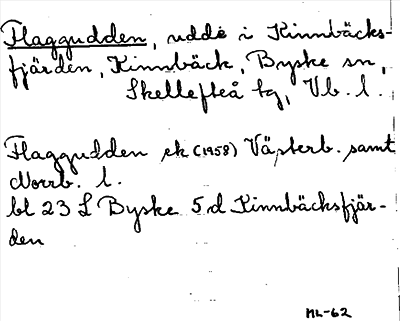 Flaggudden, udde i Kinnbäcks-
fjärden, Kinnbäck, Byske sn,
Skellefteå tg, Vb. l.
Flaggudden ek (1958) Västerb. samt
Norrb. l.
bl 23 L Byske 5 d Kinnbäcksfjär-
den
ML-62